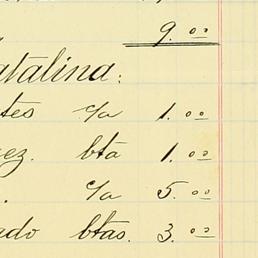 9.00
atalina:
tes c/a 1.00
ez. bta 1.00
. c/a 5.00
ado btas. 3.00